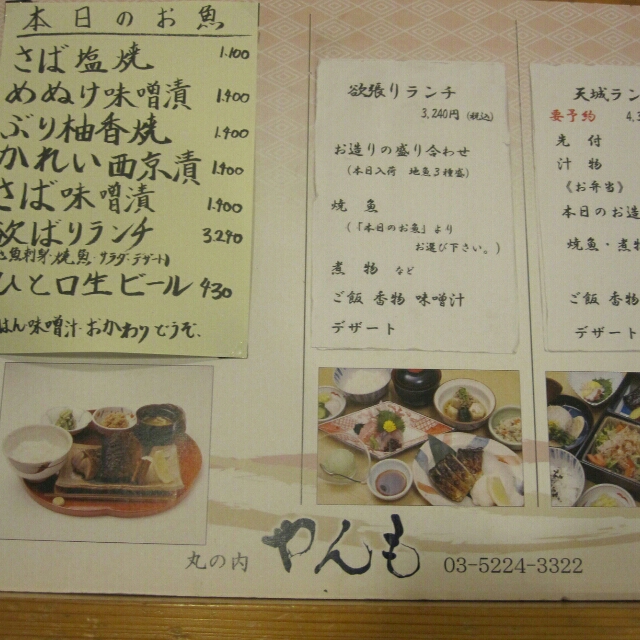 本日のお魚
さば塩焼 1.100
めぬけ味噌漬 1.400
ぶり柚香焼 1.400
かれい西京漬 1.400
さば味噌漬 1.400
欲ばりランチ 3.240
魚刺身・焼魚・サラダ・デザート)
ひと口生ビール 430
はん味噌汁・おかわりどうぞ、
欲張りランチ
3,240円 (税込)
お造りの盛り合わせ
(本日入荷 地魚3種盛)
焼 魚
(「本日のお魚」より
お選び下さい。)
煮 物 など
ご飯 香物 味噌汁
デザート
天城ラン
要予約 4,3
先 付
汁 物
《お弁当》
本日のお造
焼魚・煮物
ご飯 香物
デザート
丸の内 やんも 03-5224-3322